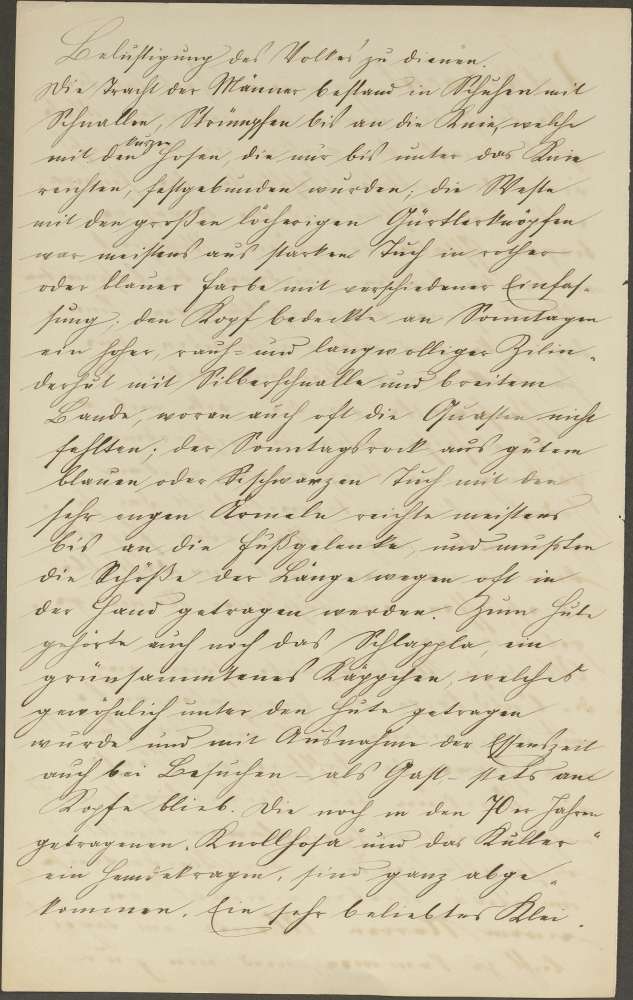 Belustigung des Volkes zu dienen.
Die Tracht der Männer bestand in Schuhen mit
Schnallen, Strümpfen bis an die Knie, welche
mit den kurzen Hosen, die nur bis unter das Knie
reichten, festgebunden wurden; die Weste
mit den großen löcherigen Gürtlerknöpfen
war meistens aus starkem Tuch in rother
oder blauer Farbe mit verschiedener Einfas-
sung. den Kopf bedeckte an Sonntagen
ein hoher, rauh- und langwolliger Zilin-
derhut mit Silberschnalle und breitem
Bande, woran auch oft die Quasten nicht
fehlten; der Sonntagsrock aus gutem
blauen oder schwarzen Tuch mit den
sehr engen Ärmeln reichte meistens
bis an die Fußgelenke, und mußten
die Schöße der Länge wegen oft in
der Hand getragen werden. Zum Hute
gehörte auch noch das Schlappla, ein
grünsammtenes Käppchen, welches
gewöhnlich unter den Hute getragen
wurde und mit Ausnahme der Essenszeit
auch bei Besuchen - als Gast - stets am
Kopfe blieb. Die noch in den 70er Jahren
getragenen „Knollhosa" und das Kulter"
ein Hemdekragen, sind ganz abge-
kommen. Ein sehr beliebtes Klei-